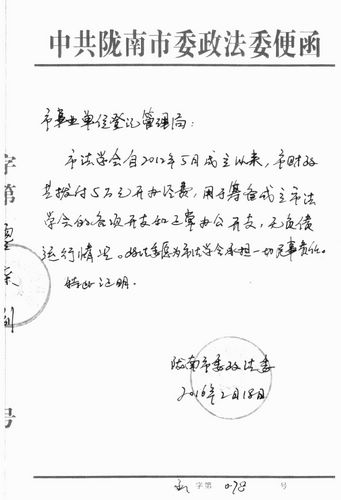 中共陇南市委政法委便函
市事业单位登记管理局：
市法学会自2012年5月成立以来，市财政
共拨付5万元开办经费，用于筹备成立市法
学会的各项开支和正常办公开支，无负债
运行情况。政法委愿为市法学会承担一切民事责任。
特此证明。
陇南市委政法委
2016年2月18日
字第 078 号
字
第
号